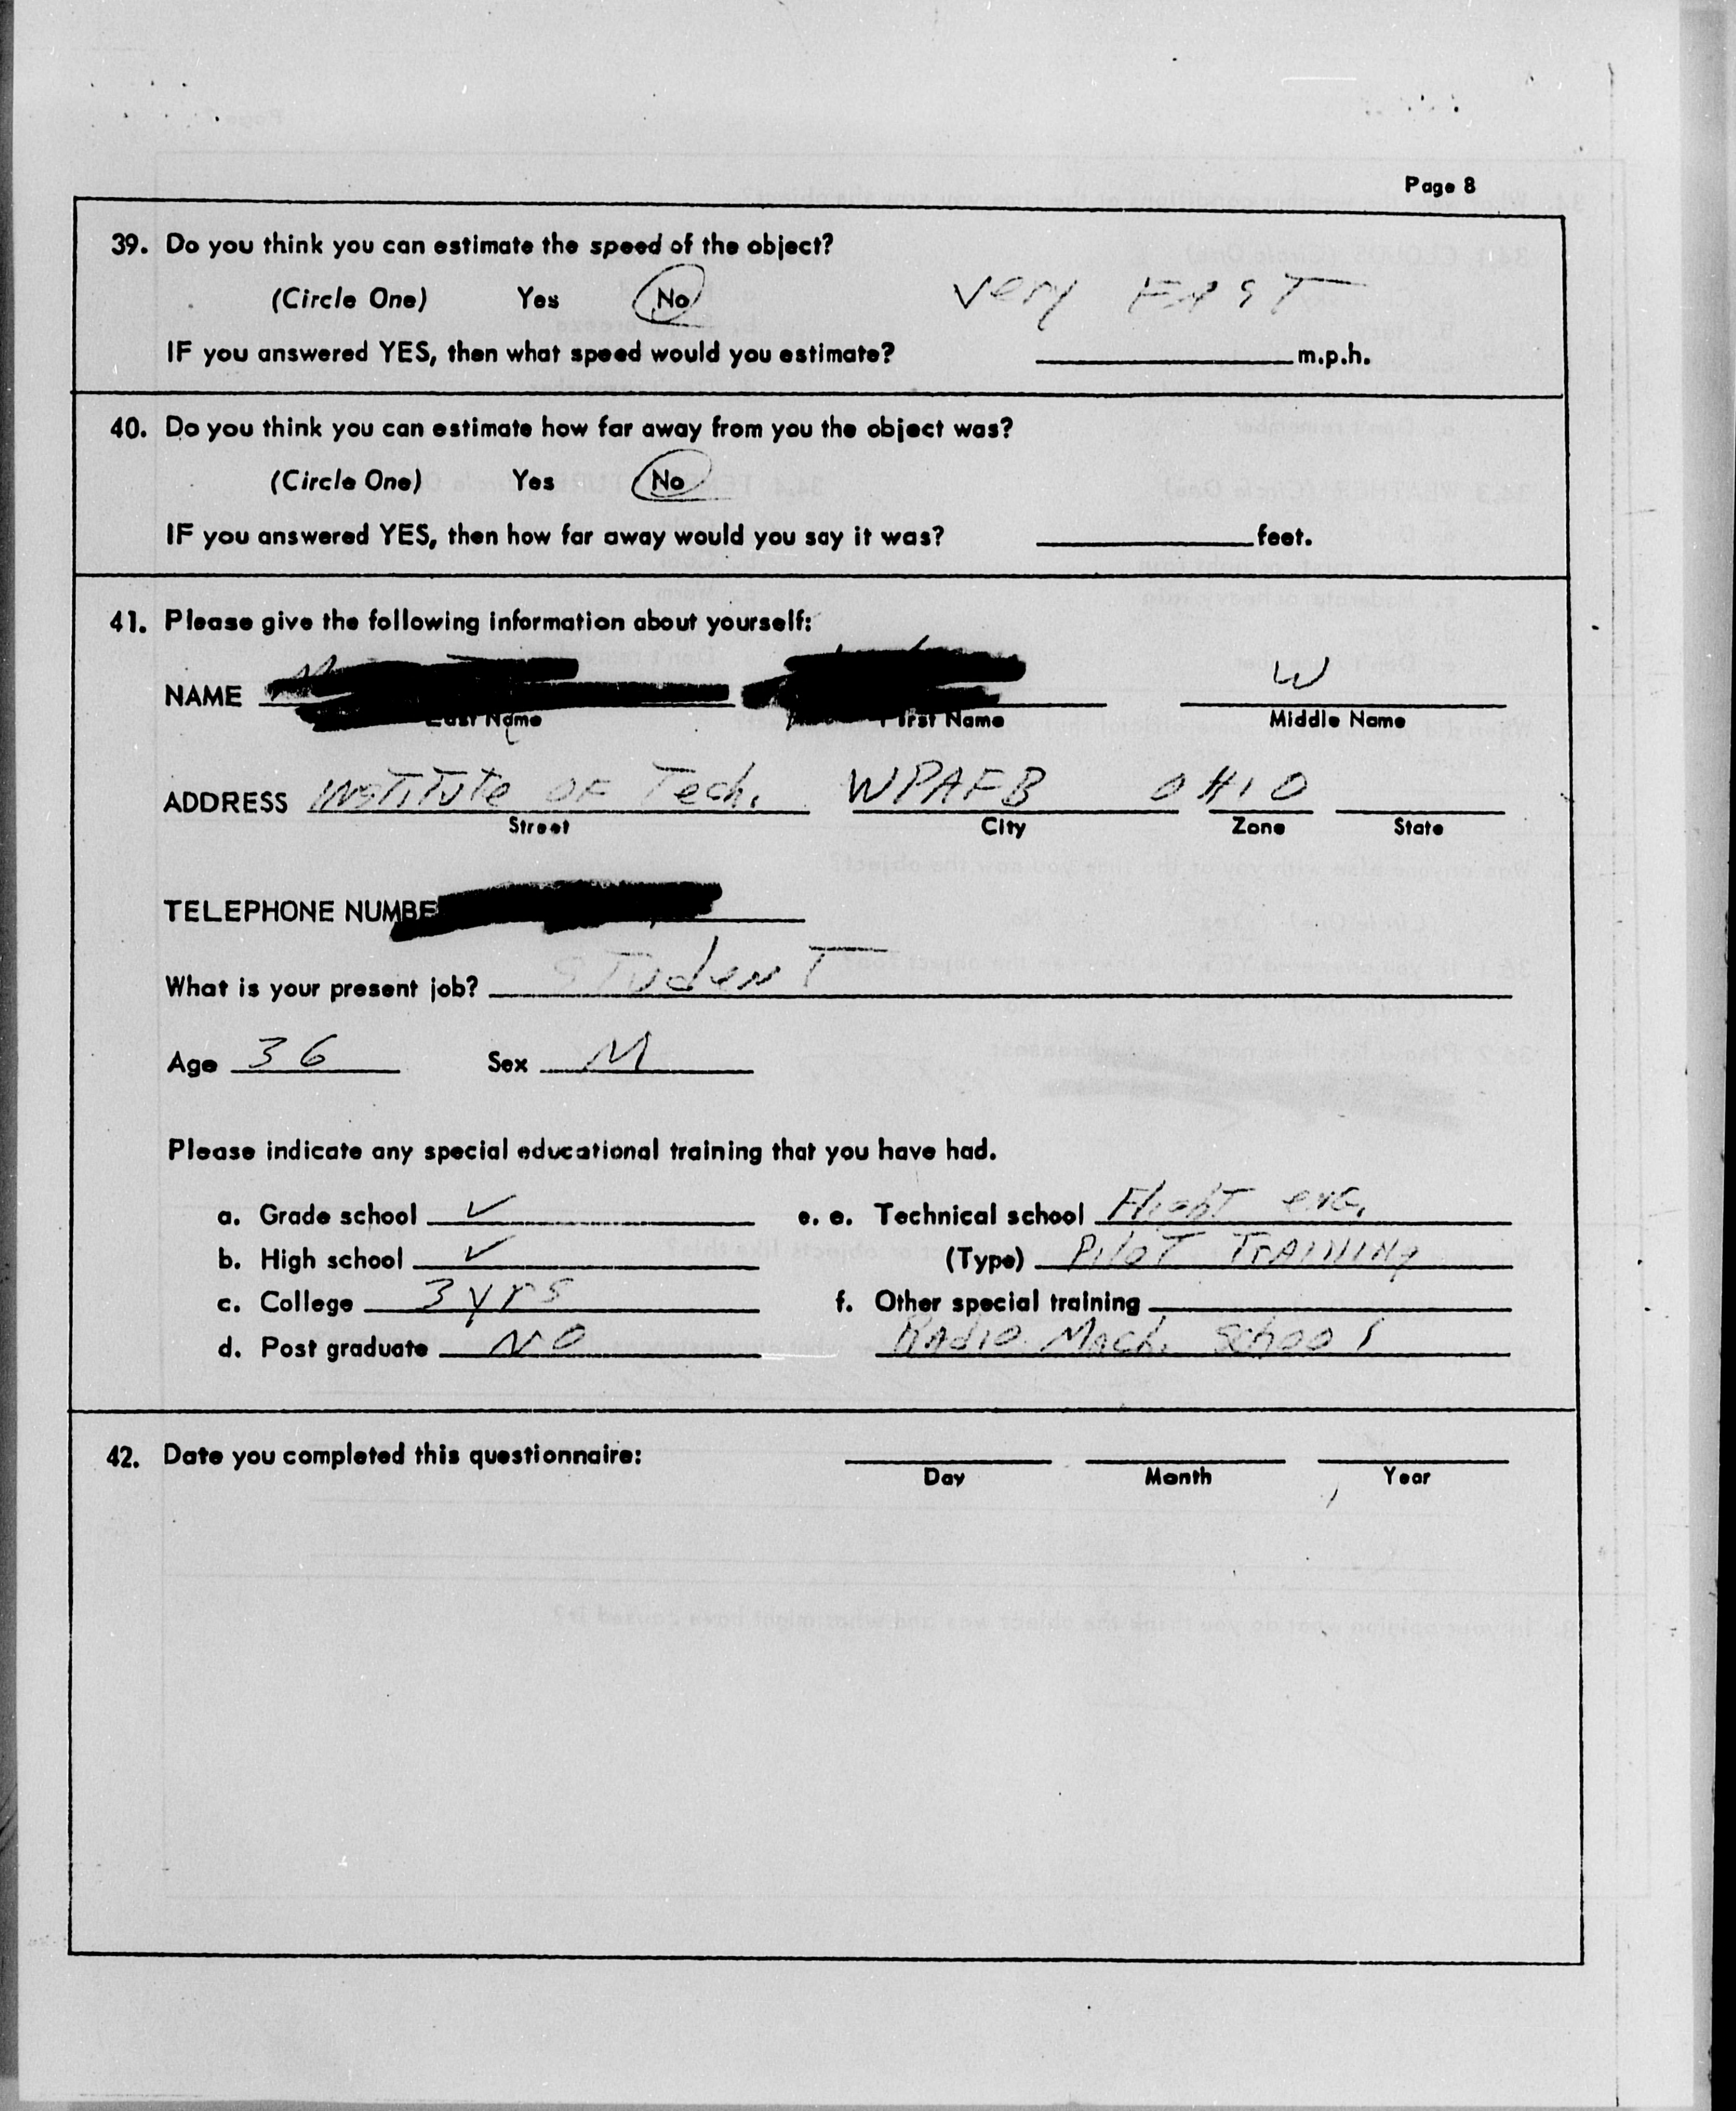 Page 8
39. Do you think you can estimate the speed of the object?
(Circle One) Yes No very FAST
IF you answered YES, then what speed would you estimate? m.p.h.
40. Do you think you can estimate how far away from you the object was?
(Circle One) Yes No
IF you answered YES, then how far away would you say it was? feet.
41. Please give the following information about yourself:
NAME W
Last Name First Name Middle Name
ADDRESS INSTITUTE OF Tech. WPAFB OHIO
Street City Zone State
TELEPHONE NUMBE
What is your present job? STUdenT
Age 36 Sex M
Please indicate any special educational training that you have had.
a. Grade school ✓ e. e. Technical school FlighT eng.
b. High school ✓ (Type) PiloT TRAINING
c. College 3 yrs f. Other special training
d. Post graduate NO RAdio Mach. School
42. Date you completed this questionnaire:
Day Month Year